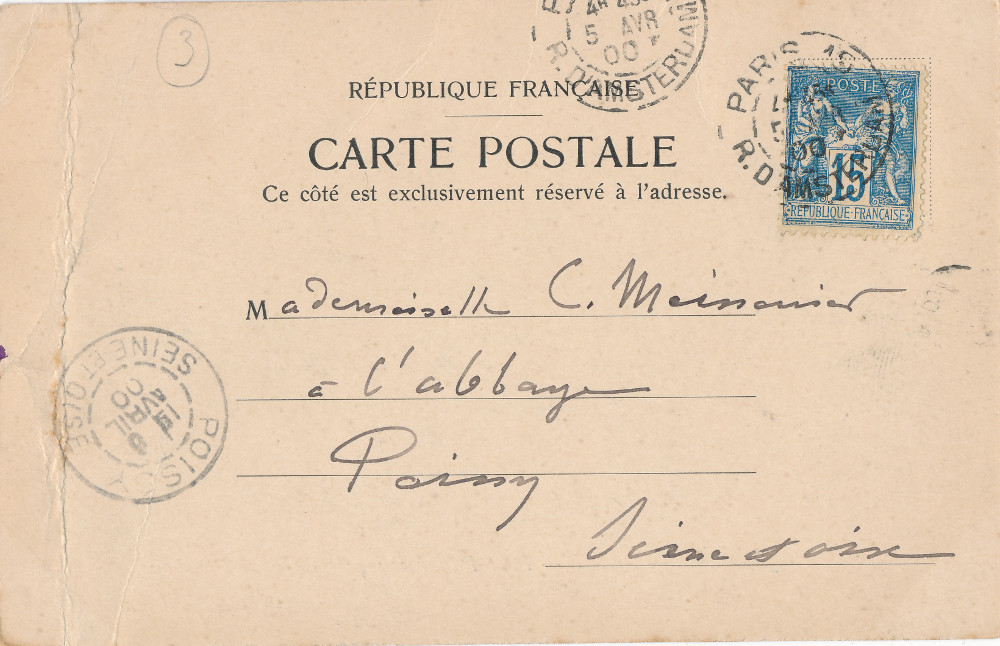 3
4H 45
5 AVR
00
R. D'AMSTERDAM
RÉPUBLIQUE FRANÇAISE
CARTE POSTALE
Ce côté est exclusivement réservé à l'adresse.
PARIS
5
00
R. D'AMSTERDAM
POSTE
15
RÉPUBLIQUE FRANÇAISE
Mademoiselle C. Meissonier
à l'abbaye
Poissy
Seine et oise
POISSY
SEINE ET OISE
6
AVRIL
00